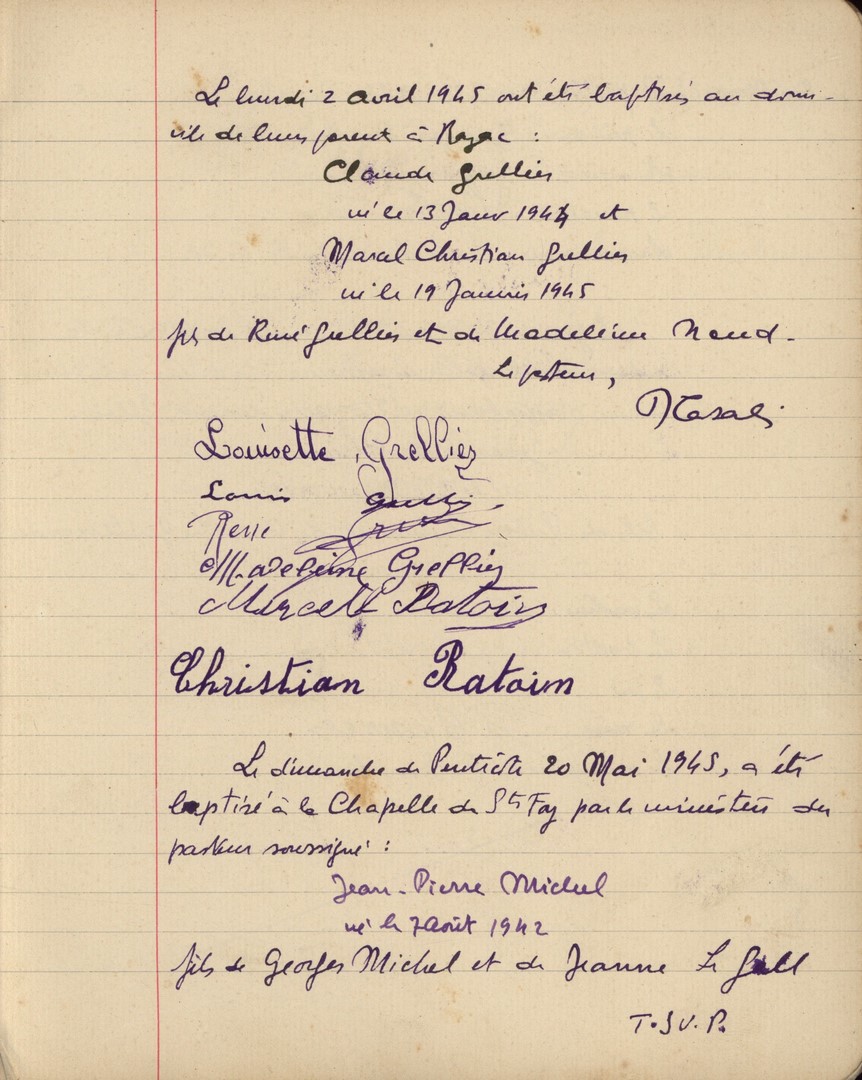 Le lundi 2 avril 1945 ont été baptisés au domi-
cile de leurs parents à Razac :
Claude Grellier
né le 13 Janv 1944 et
Marcel Christian Grellier
né le 19 Janvier 1945
fils de René Grellier et de Madeleine
Le pasteur,
Louisette Grellier
Louis
René
Madeleine Grellier
Marcelle Ratoin
Christian Ratoin
Le dimanche de Pentecôte 20 Mai 1945, a été
baptisé à la Chapelle de Ste Foy par le ministère du
pasteur soussigné :
Jean-Pierre Michel
né le 7 Août 1942
fils de Georges Michel et de Jeanne Le Gall
T.S.V.P.